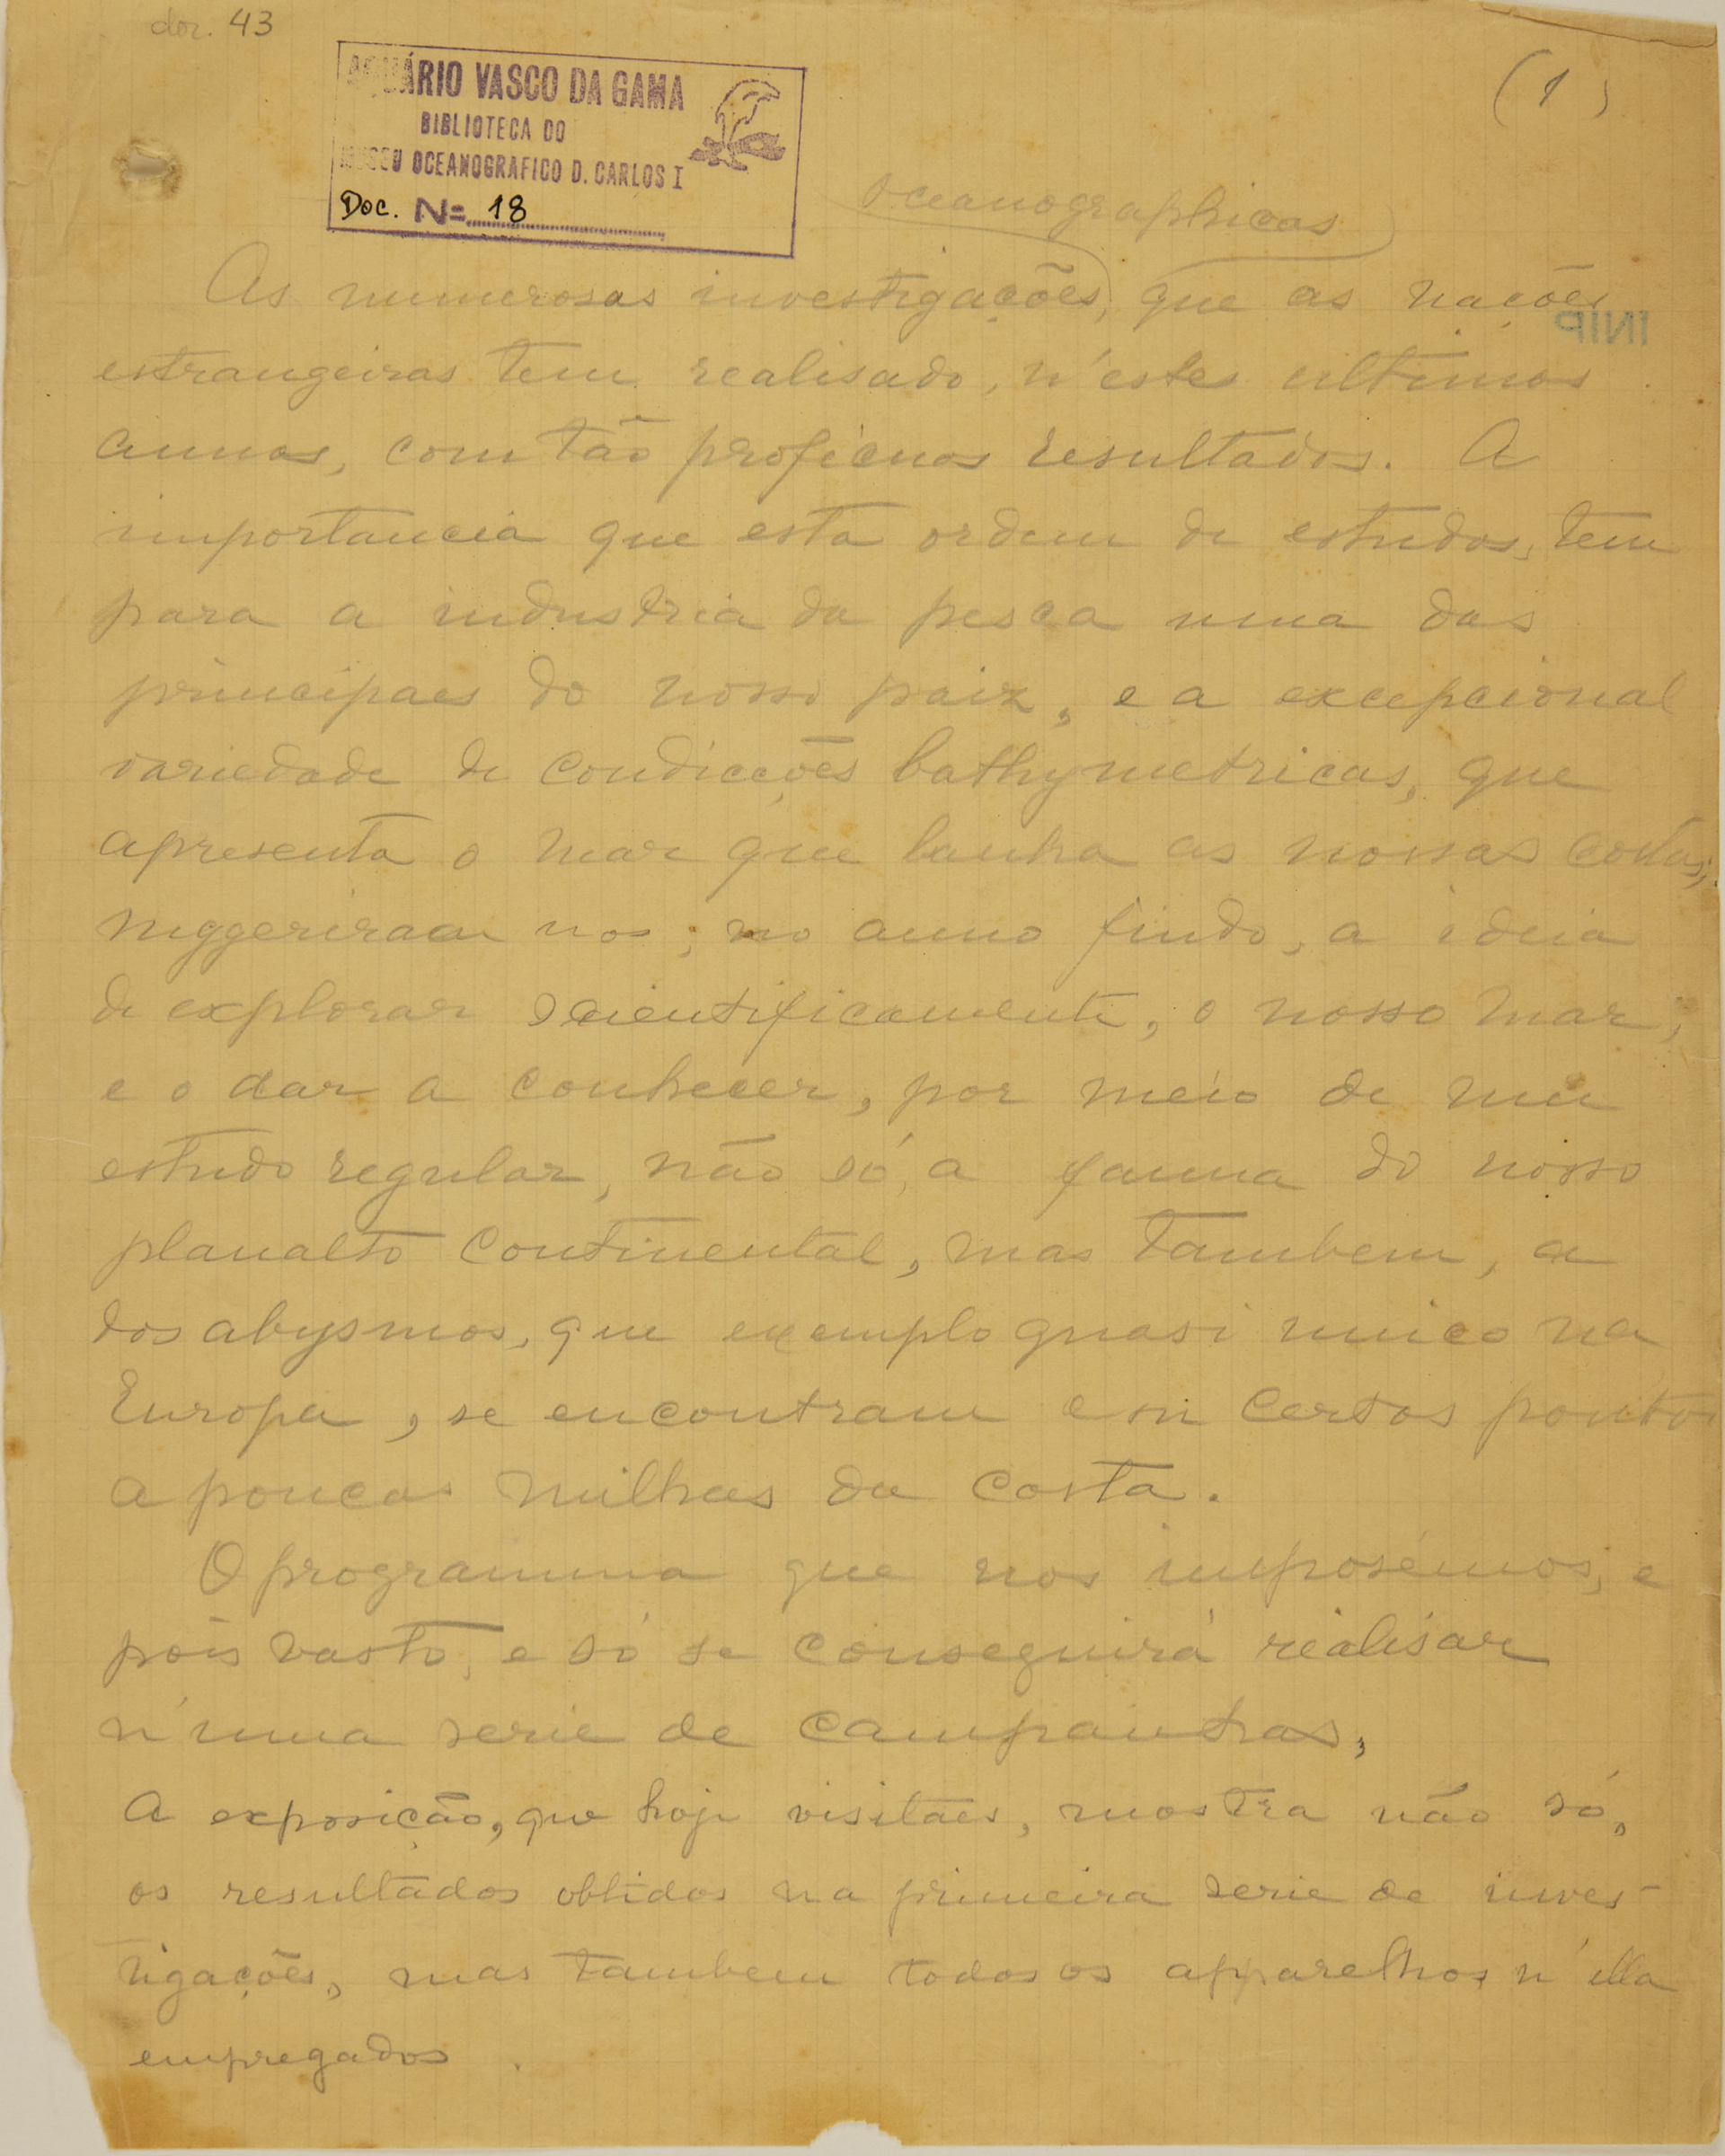 doc. 43
(1)
AQUÁRIO VASCO DA GAMA
BIBLIOTECA DO
MUSEU OCEANOGRAFICO D. CARLOS I
Doc. Nº 18
oceanographicas
As numerosas investigações, que as nações
INIP
estrangeiras tem realisado, n'estes ultimos
annos, com tão proficuos resultados. A
importancia que esta ordem de estudos, tem
para a industria da pesca uma das
principaes do nosso paiz, e a excepcional
variedade de condicções bathymetricas, que
apresenta o mar que banha as nossas costas,
suggeriram nos, no anno findo, a ideia
de explorar scientificamente, o nosso mar,
e o dar a conhecer, por meio de um
estudo regular, não só, a fauna do nosso
planalto continental, mas tambem, a
dos abysmos, que exemplo quasi unico na
Europa, se encontram em certos pontos
a poucas milhas da costa.
O programma que nos imposémos, e
pois vasto, e só se conseguirá realisar
n'uma serie de campanhas,
A exposição, que hoje visitaes, mostra não só,
os resultados obtidos na primeira serie de inves-
tigações, mas tambem todos os apparelhos n'ella
empregados.